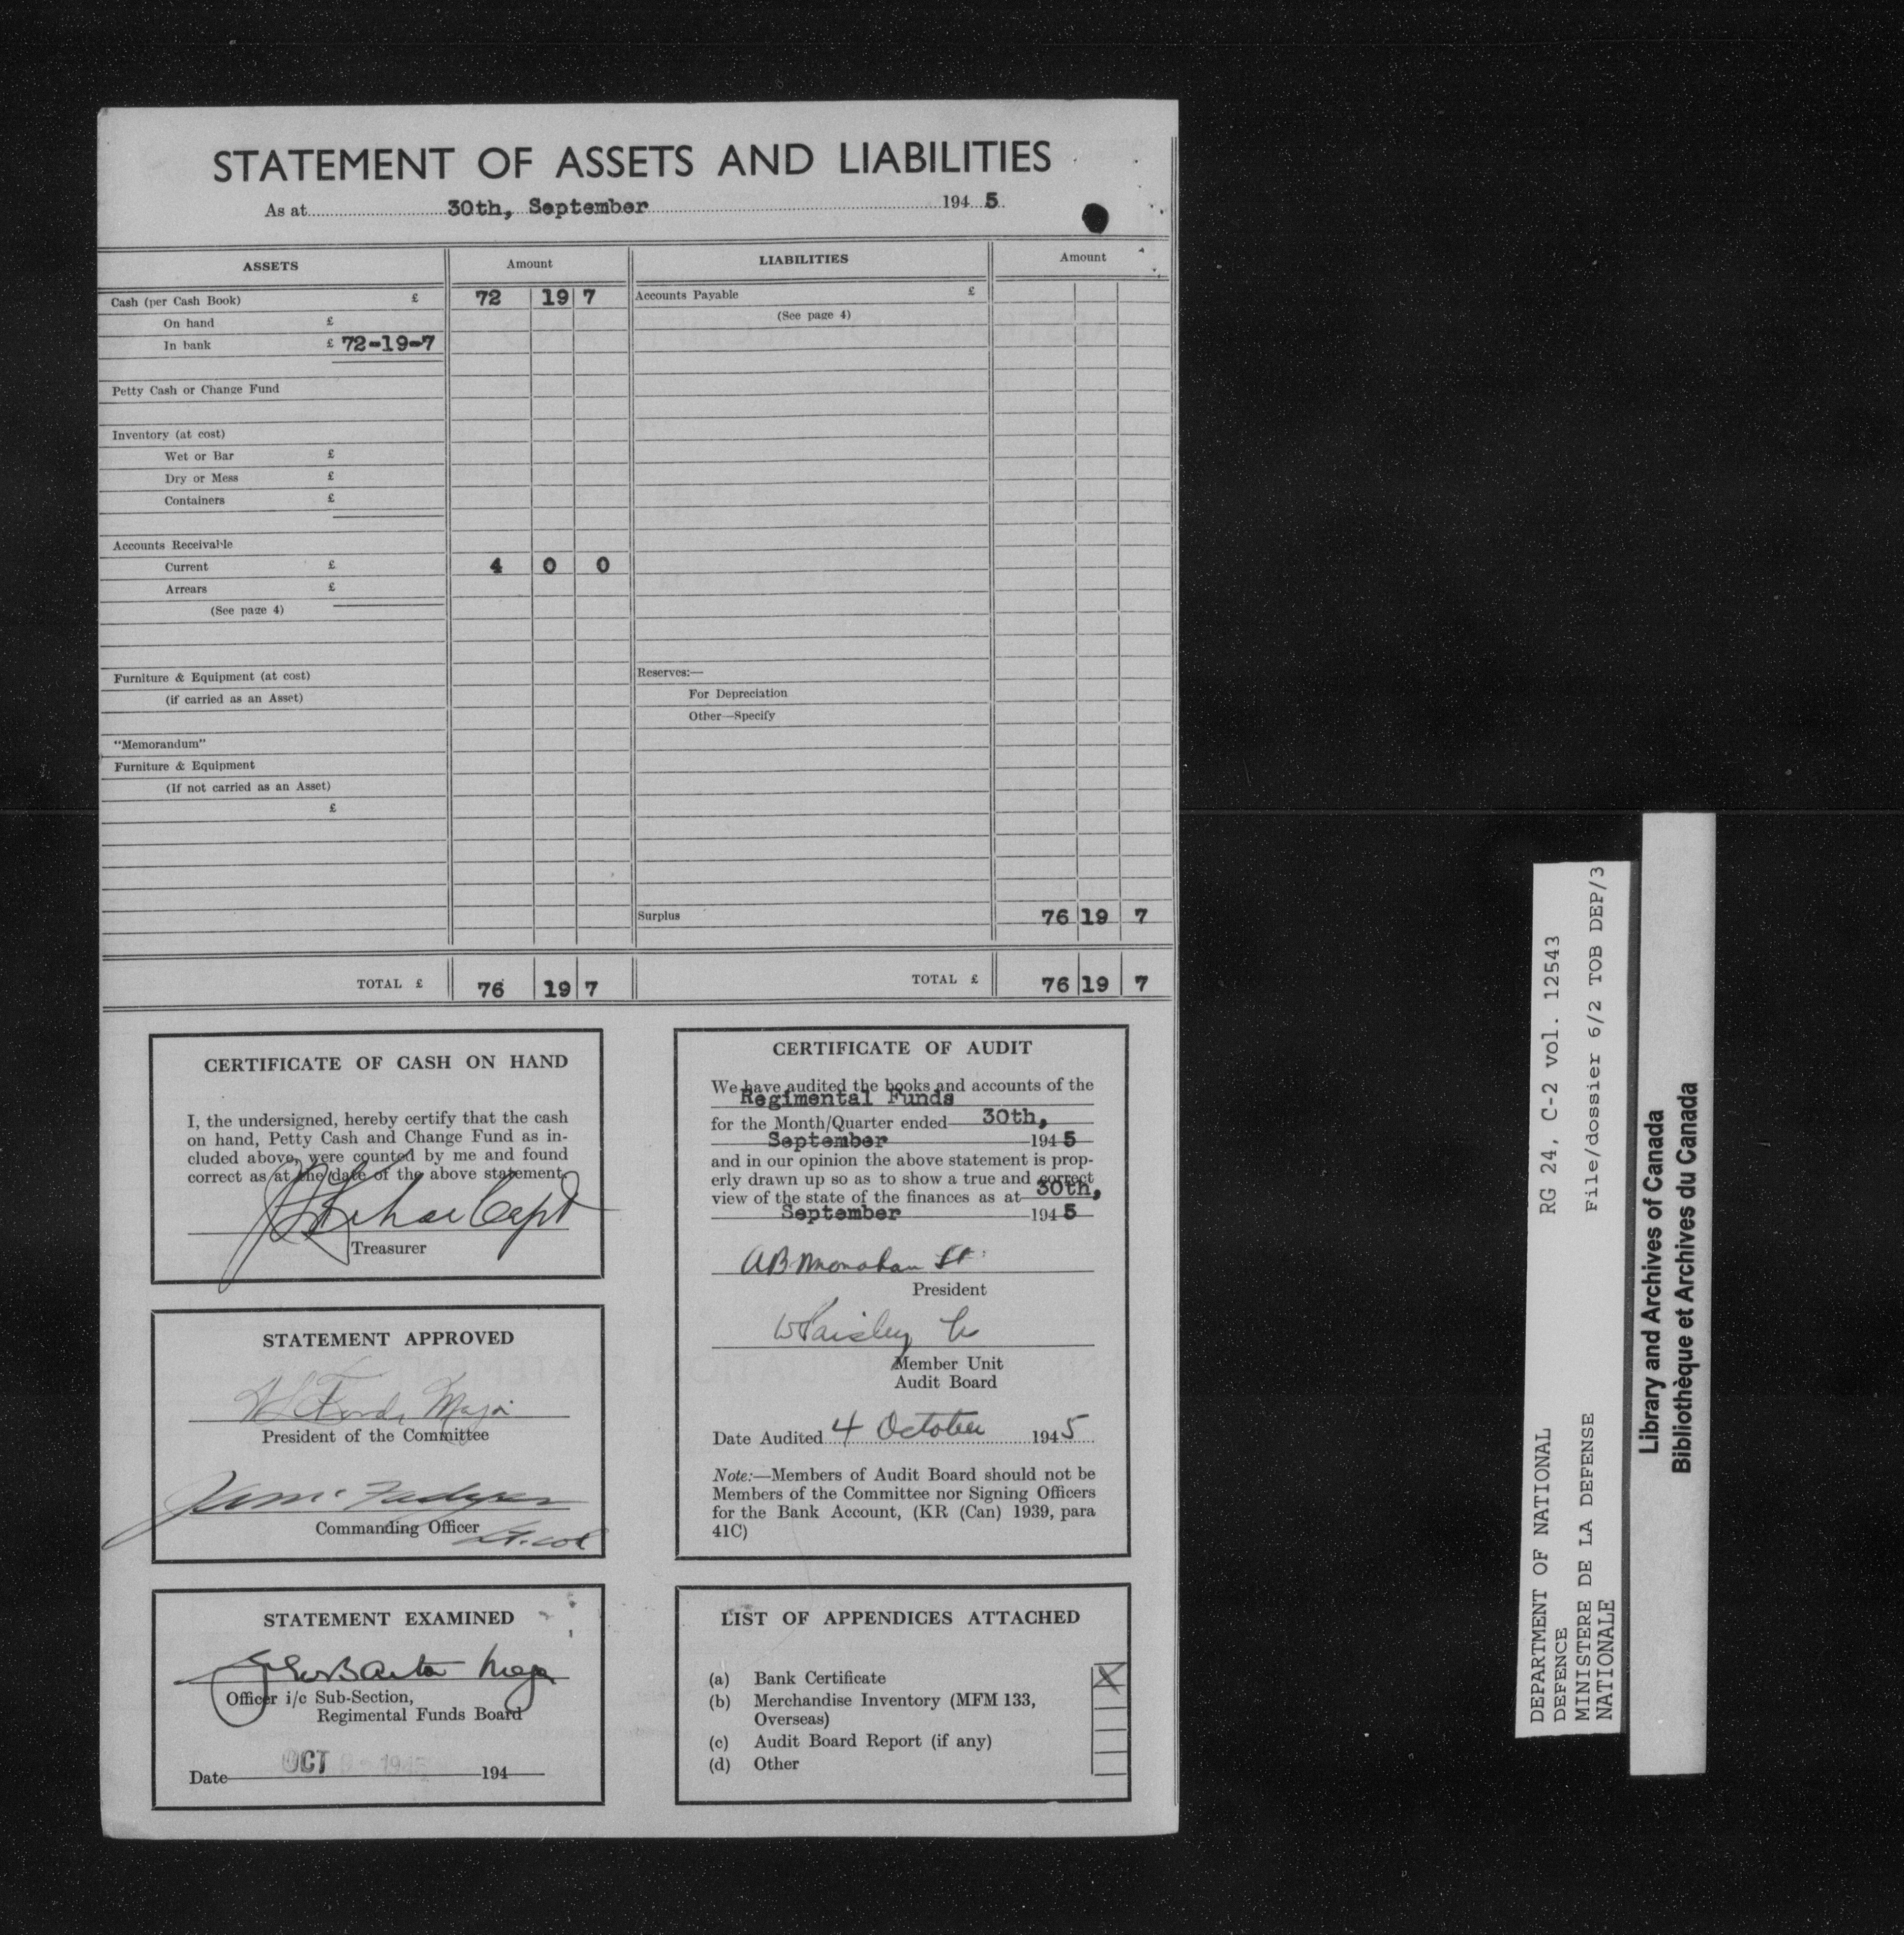 STATEMENT OF ASSETS AND LIABILITIES
As at 30th, September 194 5
ASSETS Amount LIABILITIES Amount
Cash (per Cash Book) £ 72 19 7 Accounts Payable £
On hand £ (See page 4)
In bank £ 72-19-7
Petty Cash or Change Fund
Inventory (at cost)
Wet or Bar £
Dry or Mess £
Containers £
Accounts Receivable
Current £ 4 0 0
Arrears £
(See page 4)
Furniture & Equipment (at cost) Reserves:—
(if carried as an Asset) For Depreciation
Other—Specify
"Memorandum"
Furniture & Equipment
(If not carried as an Asset)
£
Surplus 76 19 7
TOTAL £ 76 19 7 TOTAL £ 76 19 7
CERTIFICATE OF CASH ON HAND
I, the undersigned, hereby certify that the cash
on hand, Petty Cash and Change Fund as in-
cluded above, were counted by me and found
correct as at the date of the above statement.
Capt
Treasurer
STATEMENT APPROVED
President of the Committee
Commanding Officer
Lt. Col
STATEMENT EXAMINED
Officer i/c Sub-Section,
Regimental Funds Board
Date OCT 1945 194
CERTIFICATE OF AUDIT
We have audited the books and accounts of the
Regimental Funds
for the Month/Quarter ended 30th,
September 194 5
and in our opinion the above statement is prop-
erly drawn up so as to show a true and correct
view of the state of the finances as at 30th,
September 194 5
AB Monahan Lt
President
W Paisley Lt
Member Unit
Audit Board
Date Audited 4 October 1945
Note:—Members of Audit Board should not be
Members of the Committee nor Signing Officers
for the Bank Account, (KR (Can) 1939, para
41C)
LIST OF APPENDICES ATTACHED
(a) Bank Certificate X
(b) Merchandise Inventory (MFM 133,
Overseas)
(c) Audit Board Report (if any)
(d) Other
DEPARTMENT OF NATIONAL RG 24, C-2 vol. 12543
DEFENCE
MINISTERE DE LA DEFENSE File/dossier 6/2 TOB DEP/3
NATIONALE
Library and Archives of Canada
Bibliothèque et Archives du Canada